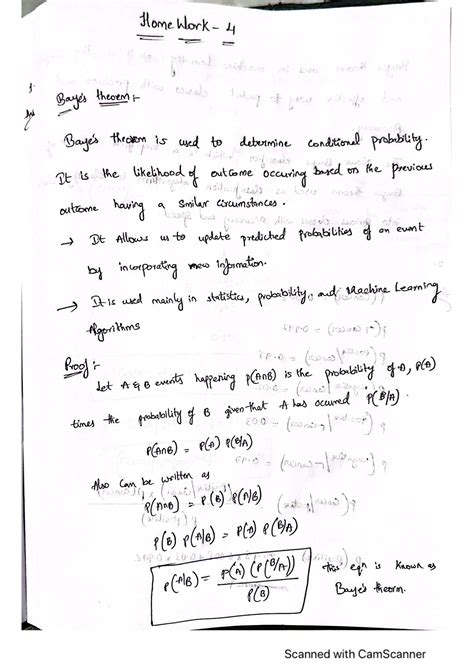 Home Work - 4
1.
Ans
Baye's theorem :-
Baye's theorem is used to determine conditional probability.
It is the likelihood of outcome occuring based on the previous
outcome having a similar circumstances.
→ It Allows us to update predicted probabilities of an event
by incorporating new information.
→ It is used mainly in statistics, probability, and Machine Learning
Algorithms
Proof :-
Let A & B events happening P(A∩B) is the probability of A, P(A)
times the probability of B given that A has occured P(B/A).
P(A∩B) = P(A) P(B/A)
Also Can be written as
P(A∩B) = P(B) P(A/B)
P(B) P(A/B) = P(A) P(B/A)
P(A/B) = P(A) (P(B/A)) / P(B)
this eqn is known as
Baye's theorm.
Scanned with CamScanner